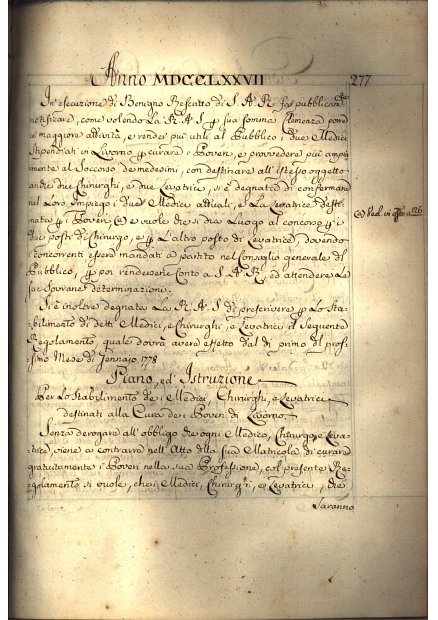 Anno MDCCLXXVII
277
In' esecuzione di Benigno Rescritto di S. A. R. fas pubblicam.te
notificare, come volendo La R. A. S. p sua somma Clemenza porre
in' maggiore attività, e render' più utili al Pubblico i due Medici
Stipendiati in Livorno p curare i Poveri, e provvedere più ampia
mente al Soccorso de medesimi, con destinare all' istesso oggetto
anche due Chirurghi, e due Levatrici, si è degnata di confermare
nel Loro impiego i due Medici attuali, e La Levatrice desti
nata p i Poveri (a) e vuole che si dia Luogo al concorso p i
due posti di Chirurgo, e p L'altro posto di Levatrice, dovendo
i concorrenti essere mandati a partito nel Consiglio generale di
Pubblico, p poi rendersene Conto a S. A. R., ed attendere Le
sue Sovrane determinazioni.
(a) Ved. in' a 126
Si è inoltre degnata La R. A. S. di prescrivere p Lo Sta-
bilimento di detti Medici, e Chirurghi, e Levatrici il seguente
Regolamento, quale dovrà avere effetto dal dì primo del pros-
simo Mese di Gennajo 1778
Piano, ed Istruzione
Per Lo Stabilimento dei Medici, Chirurghi, e Levatrici
destinati alla Cura dei Poveri di Livorno,
Senza derogare all' obbligo che ogni Medico, Chirurgo, e Leva-
trice, viene a contrarre nell' Atto della sua Matricola di curare
gratuitamente i Poveri nella sua Professione, col presente Re-
golamento si vuole, che i Medici, Chirurghi, e Levatrici, che
Saranno